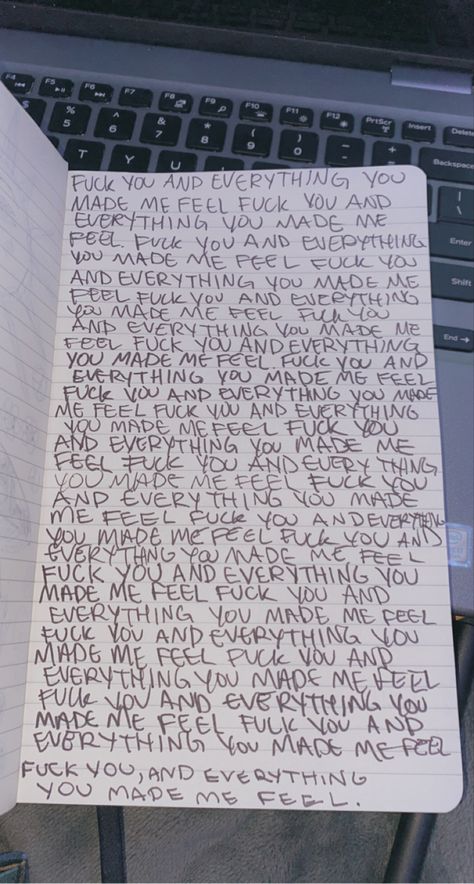 F4
F5
F6
F7
F8
F9
F10
F11
F12
PrtScr
Insert
Delete
$
%
5
^
6
&
7
*
8
(
9
)
0
-
+
=
Backspace
T
Y
U
|
\
Enter
Shift
End
FUCK YOU AND EVERYTHING YOU
MADE ME FEEL FUCK YOU AND
EVERYTHING YOU MADE ME
FEEL. FUCK YOU AND EVERYTHING
YOU MADE ME FEEL FUCK YOU
AND EVERYTHING YOU MADE ME
FEEL FUCK YOU AND EVERYTHING
YOU MADE ME FEEL FUCK YOU
AND EVERYTHING YOU MADE ME
FEEL FUCK YOU AND EVERYTHING
YOU MADE ME FEEL. FUCK YOU AND
EVERYTHING YOU MADE ME FEEL
FUCK YOU AND EVERYTHING YOU MADE
ME FEEL FUCK YOU AND EVERYTHING
YOU MADE ME FEEL FUCK YOU
AND EVERYTHING YOU MADE ME
FEEL FUCK YOU AND EVERYTHING
YOU MADE ME FEEL FUCK YOU
AND EVERYTHING YOU MADE
ME FEEL FUCK YOU AND EVERYTHING
YOU MADE ME FEEL FUCK YOU AND
EVERYTHING YOU MADE ME FEEL
FUCK YOU AND EVERYTHING YOU
MADE ME FEEL FUCK YOU AND
EVERYTHING YOU MADE ME FEEL
FUCK YOU AND EVERYTHING YOU
MADE ME FEEL FUCK YOU AND
EVERYTHING YOU MADE ME FEEL
FUCK YOU AND EVERYTHING YOU
MADE ME FEEL FUCK YOU AND
EVERYTHING YOU MADE ME FEEL
FUCK YOU, AND EVERYTHING
YOU MADE ME FEEL.